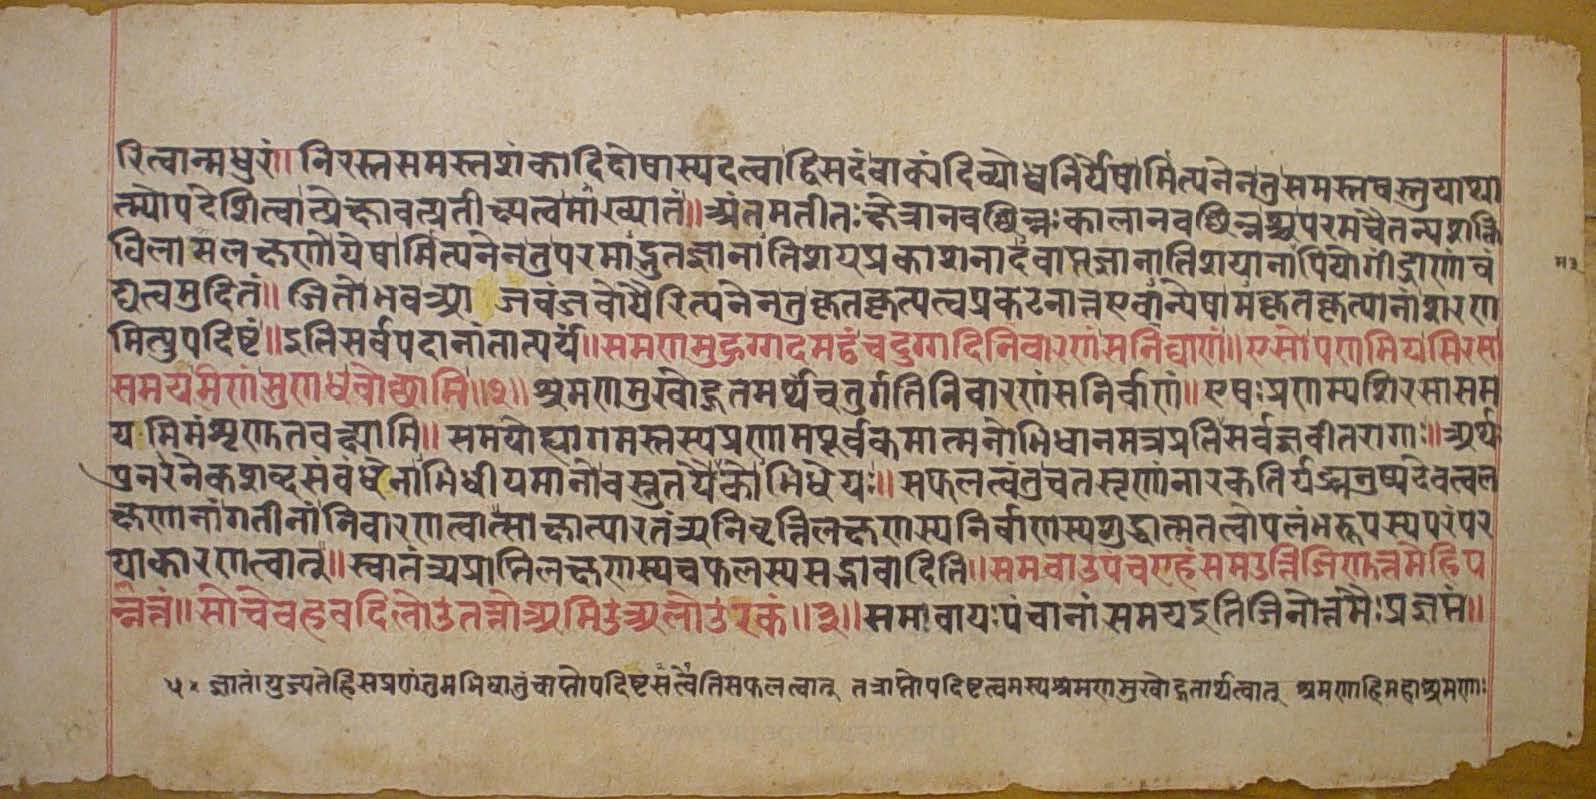 रित्वान्मधुरं। निरस्तसमस्तशंकादिदोषास्पदत्वाद्विसदंवाक्यंदिव्योध्वनिर्येषामित्यनेनतुसमस्तवस्तुयाथा
त्म्योपदेशित्वात्प्रेक्षावत्प्रतीक्ष्यत्वमाख्यातं॥ अंतमतीतःक्षेत्रानवछिन्नःकालानवछिन्नश्चपरमचैतन्यशक्ति
विलासलक्षणोयेषामित्यनेनतुपरमाद्भुतज्ञानातिशयप्रकाशनादवाप्तज्ञानातिशयानामपियोगींद्राणांवं
द्यत्वमुदितं॥ जितोभवआजवंजवोयैरित्यनेनतुकृतकृत्यत्वप्रकटनात्तएवान्येषामकृतकृत्यानांशरण
मित्युपदिष्टं॥ इतिसर्वपदानांतात्पर्यं॥ समणमुहुग्गदमट्ठंचदुग्गदिनिवारणंसनिव्वाणं॥ एसोपणमियसिरसा
समयमिणंसुणधवोच्छामि॥२॥ श्रमणमुखोद्गतमर्थंचतुर्गतिनिवारणंसनिर्वाणं॥ एषःप्रणम्यशिरसासम
यमिमंशृणुतवक्ष्यामि॥ समयोह्यागमस्तस्यप्रणामपूर्वकमात्मनाभिधानमत्रप्रतिसर्वज्ञवीतरागाः॥ अर्थ
पुनरनेकशब्दसंबंधेनाभिधीयमानोवस्तुतयैकोभिधेयः॥ सफलत्वंतुचतसृणांनारकतिर्यङ्मनुष्यदेवत्वल
क्षणानांगतीनांनिवारणत्वात्साक्षात्पारतंत्र्यनिवृत्तिलक्षणस्यनिर्वाणस्यशुद्धात्मतत्वोपलंभरूपस्यपरंपर
याकारणत्वात्॥ स्वातंत्र्यप्राप्तिलक्षणस्यचफलस्यसद्भावादिति॥ समवाउपंचएहंसमउत्तिजिणुत्तमेहिप
न्नत्तं॥ सोचेवहवदिलोउतत्तोअमिउअलोउरकं॥३॥ समवायःपंचानांसमयइतिजिनोत्तमैःप्रज्ञप्तं॥
ज्ञातं। युज्यतेहिसप्रणंतुमभिधातुंचाप्तोपदिष्टत्वेसतिसफलत्वात् तत्राप्तोपदिष्टत्वमस्यश्रमणमुखोद्गतार्थत्वात् श्रमणाहिमहाश्रमणाः